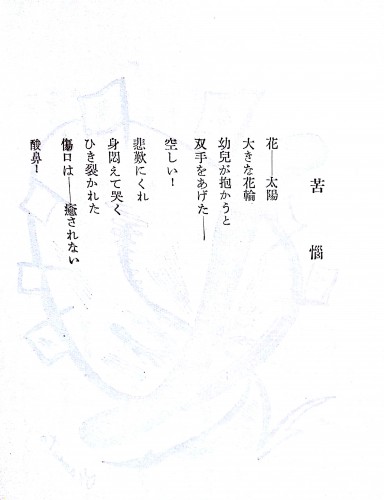 苦惱
花——太陽
大きな花輪
幼兒が抱かうと
双手をあげた——
空しい！
悲歎にくれ
身悶えて哭く
ひき裂かれた
傷口は——癒されない
酸鼻！